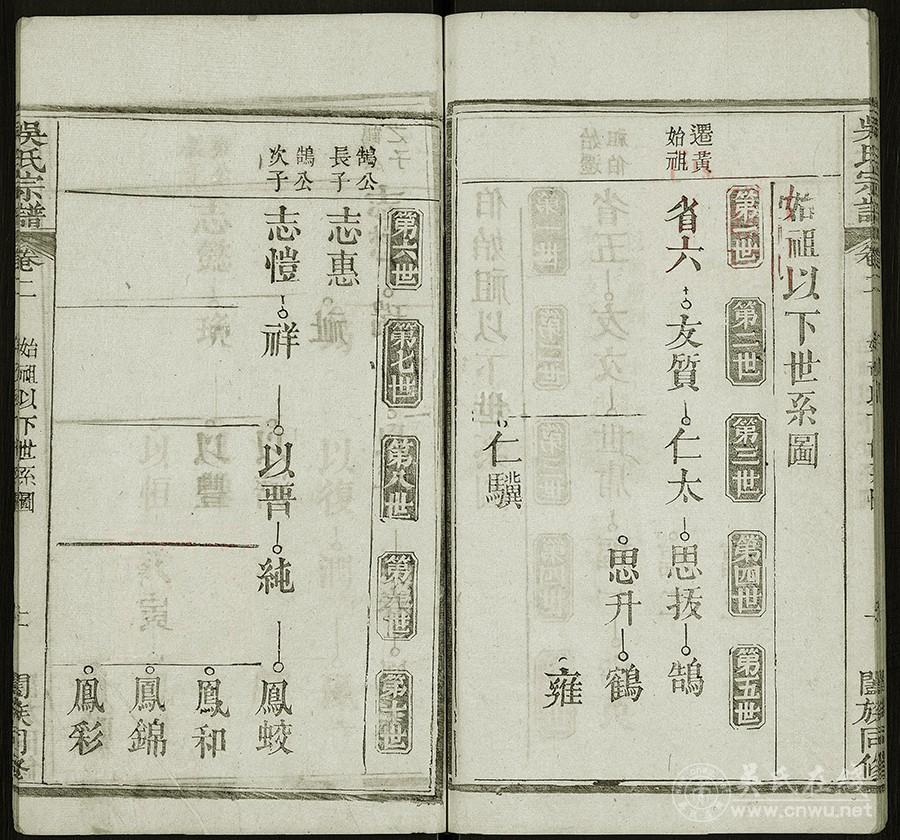 吳氏宗譜
卷二
始祖以下世系圖
第一世
第二世
第三世
第四世
第五世
遷黃
始祖
省六
友質
仁太
思拔
鵠
思升
鶴
雍
仁驥
闔族同修
第六世
第七世
第八世
第九世
第十世
鵠公
長子
志惠
鵠公
次子
志愷
祥
以晋
純
鳳蛟
鳳和
鳳錦
鳳彩
吳氏宗譜
卷二
始祖以下世系圖
闔族同修
吴氏在线
www.cnwu.net